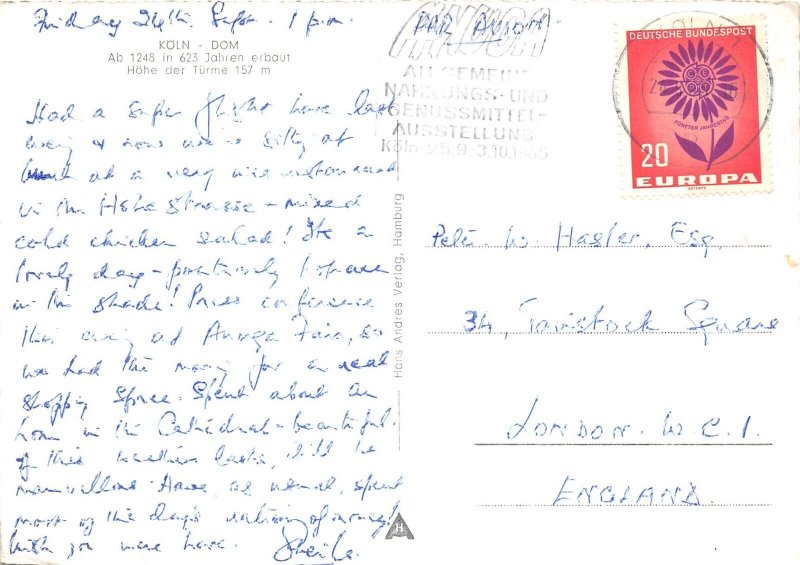 Friday 24th. Sept. 1 p.m.
PAR AVION.
KÖLN - DOM
Ab 1248 in 623 Jahren erbaut
Höhe der Türme 157 m
ALLGEMEINE
NAHRUNGS- UND
GENUSSMITTEL-
AUSSTELLUNG
Köln 25.9.-3.10.1965
DEUTSCHE BUNDESPOST
FÜNFTER JAHRESTAG
20
EUROPA
Had a super flight here last
evng & now we're sitting at
at a very nice restaurant
in the Hohe Strasse - mixed
cold chicken salad! Its a
lovely day - positively
in the shade! Press conference
this evng at Anuga Fair, so
we had the morng for a real
shopping spree. Spent about an
hour in the Cathedral - beautiful.
If this weather lasts, it'll be
marvellous. Have, as usual, spent
most of the day's of money!
Wish you were here. Sheila.
Hans Andres Verlag, Hamburg
Peter W. Hasler, Esq.
34, Tavistock Square
LONDON. W.C.1.
ENGLAND.